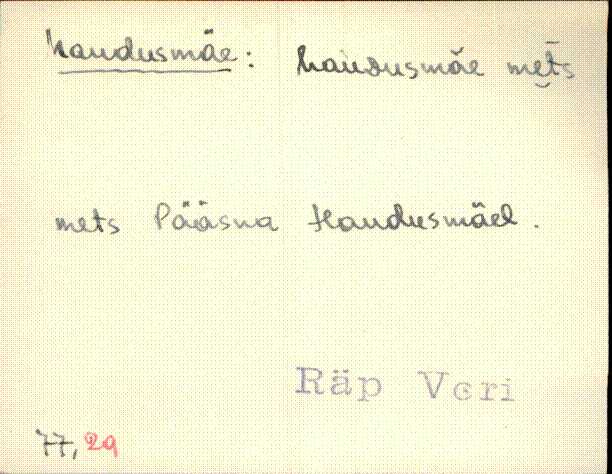 haudusmäe: haudusmäe mets
mets Pääsna Haudusmäel.
Räp Veri
77, 29